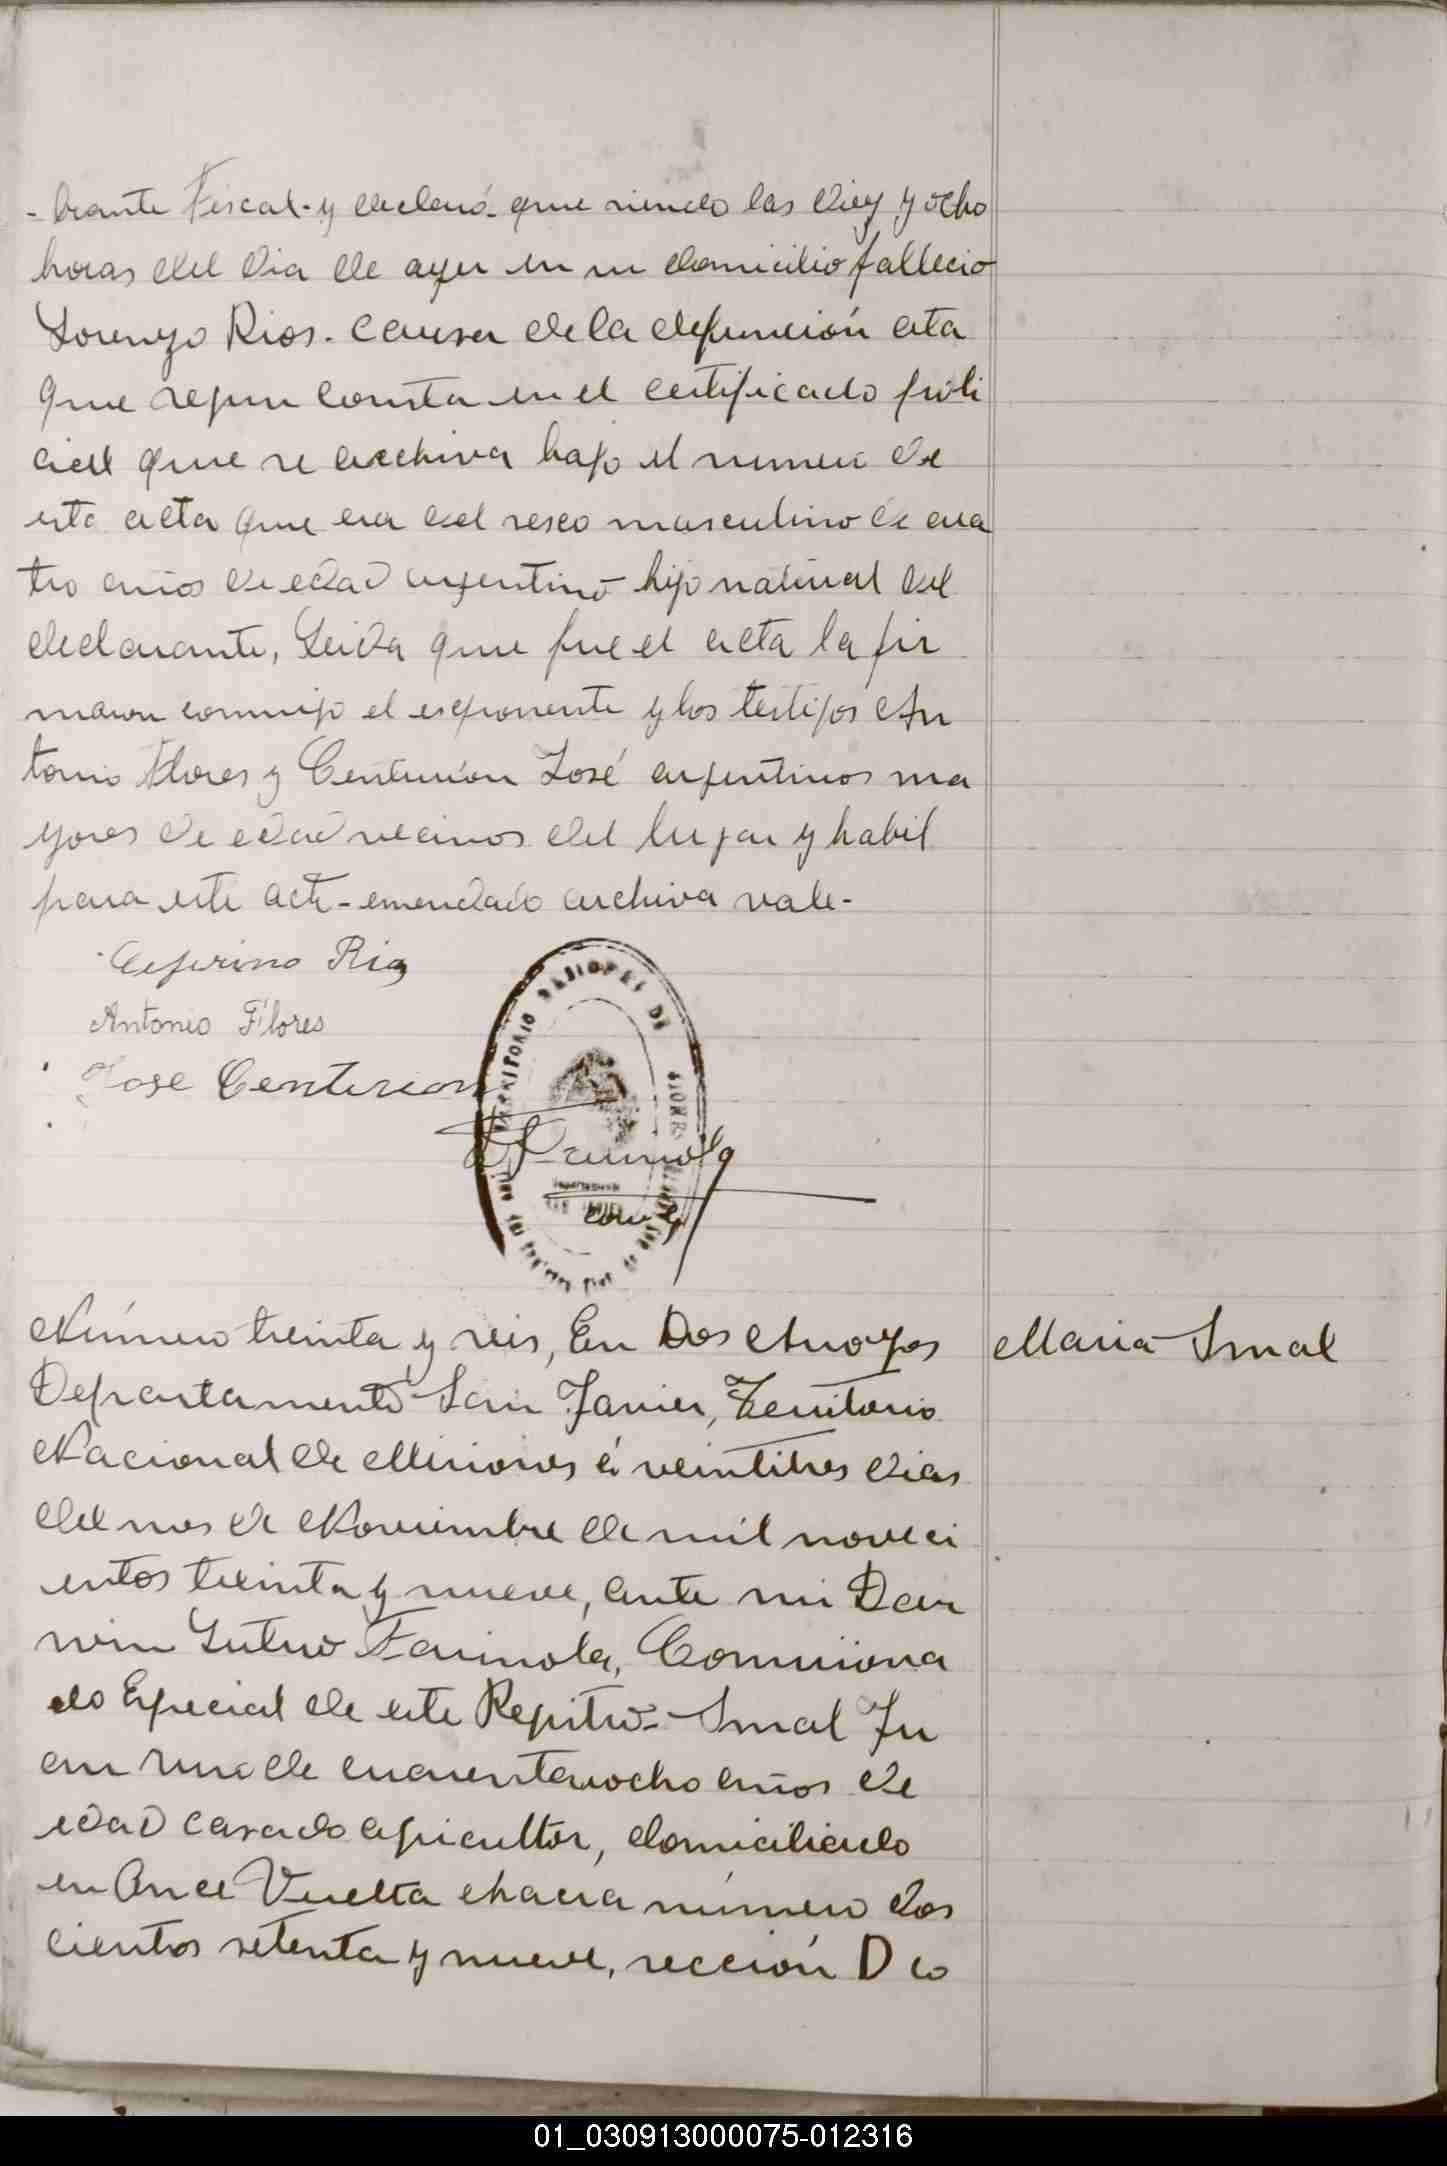 -brante Fiscal- y declaró- que siendo las diez y ocho
horas del dia de ayer en su domicilio fallecio
Lorenzo Rios. causa de la defunción
que segun consta en el certificado poli
cial que se archiva bajo el numero de
esta acta que era del sexo masculino de cua
tro años de edad argentino hijo natural del
declarante, Leida que fue el acta la fir
maron conmigo el exponente y los testigos An
tonio Flores y Centurión José argentinos ma
yores de edad vecinos del lugar y habil
para este acto - emendado archiva vale-
Ceferino Rios
Antonio Flores
Jose Centurion
TERRITORIO NACIONAL DE MISIONES
Número treinta y seis, En Dos Arroyos
Maria Smal
Departamento San Javier, Territorio
Nacional de Misiones á veintitres dias
del mes de Noviembre de mil noveci
entos treinta y nueve, ante mi Dar
win Lutero Farinola, Comisiona
do Especial de este Registro- Smal Ju
an de cuarenta ocho años de
edad casado agricultor, domiciliado
en Once Vuelta chacra número dos
cientos setenta y nueve, sección D co
01_030913000075-012316